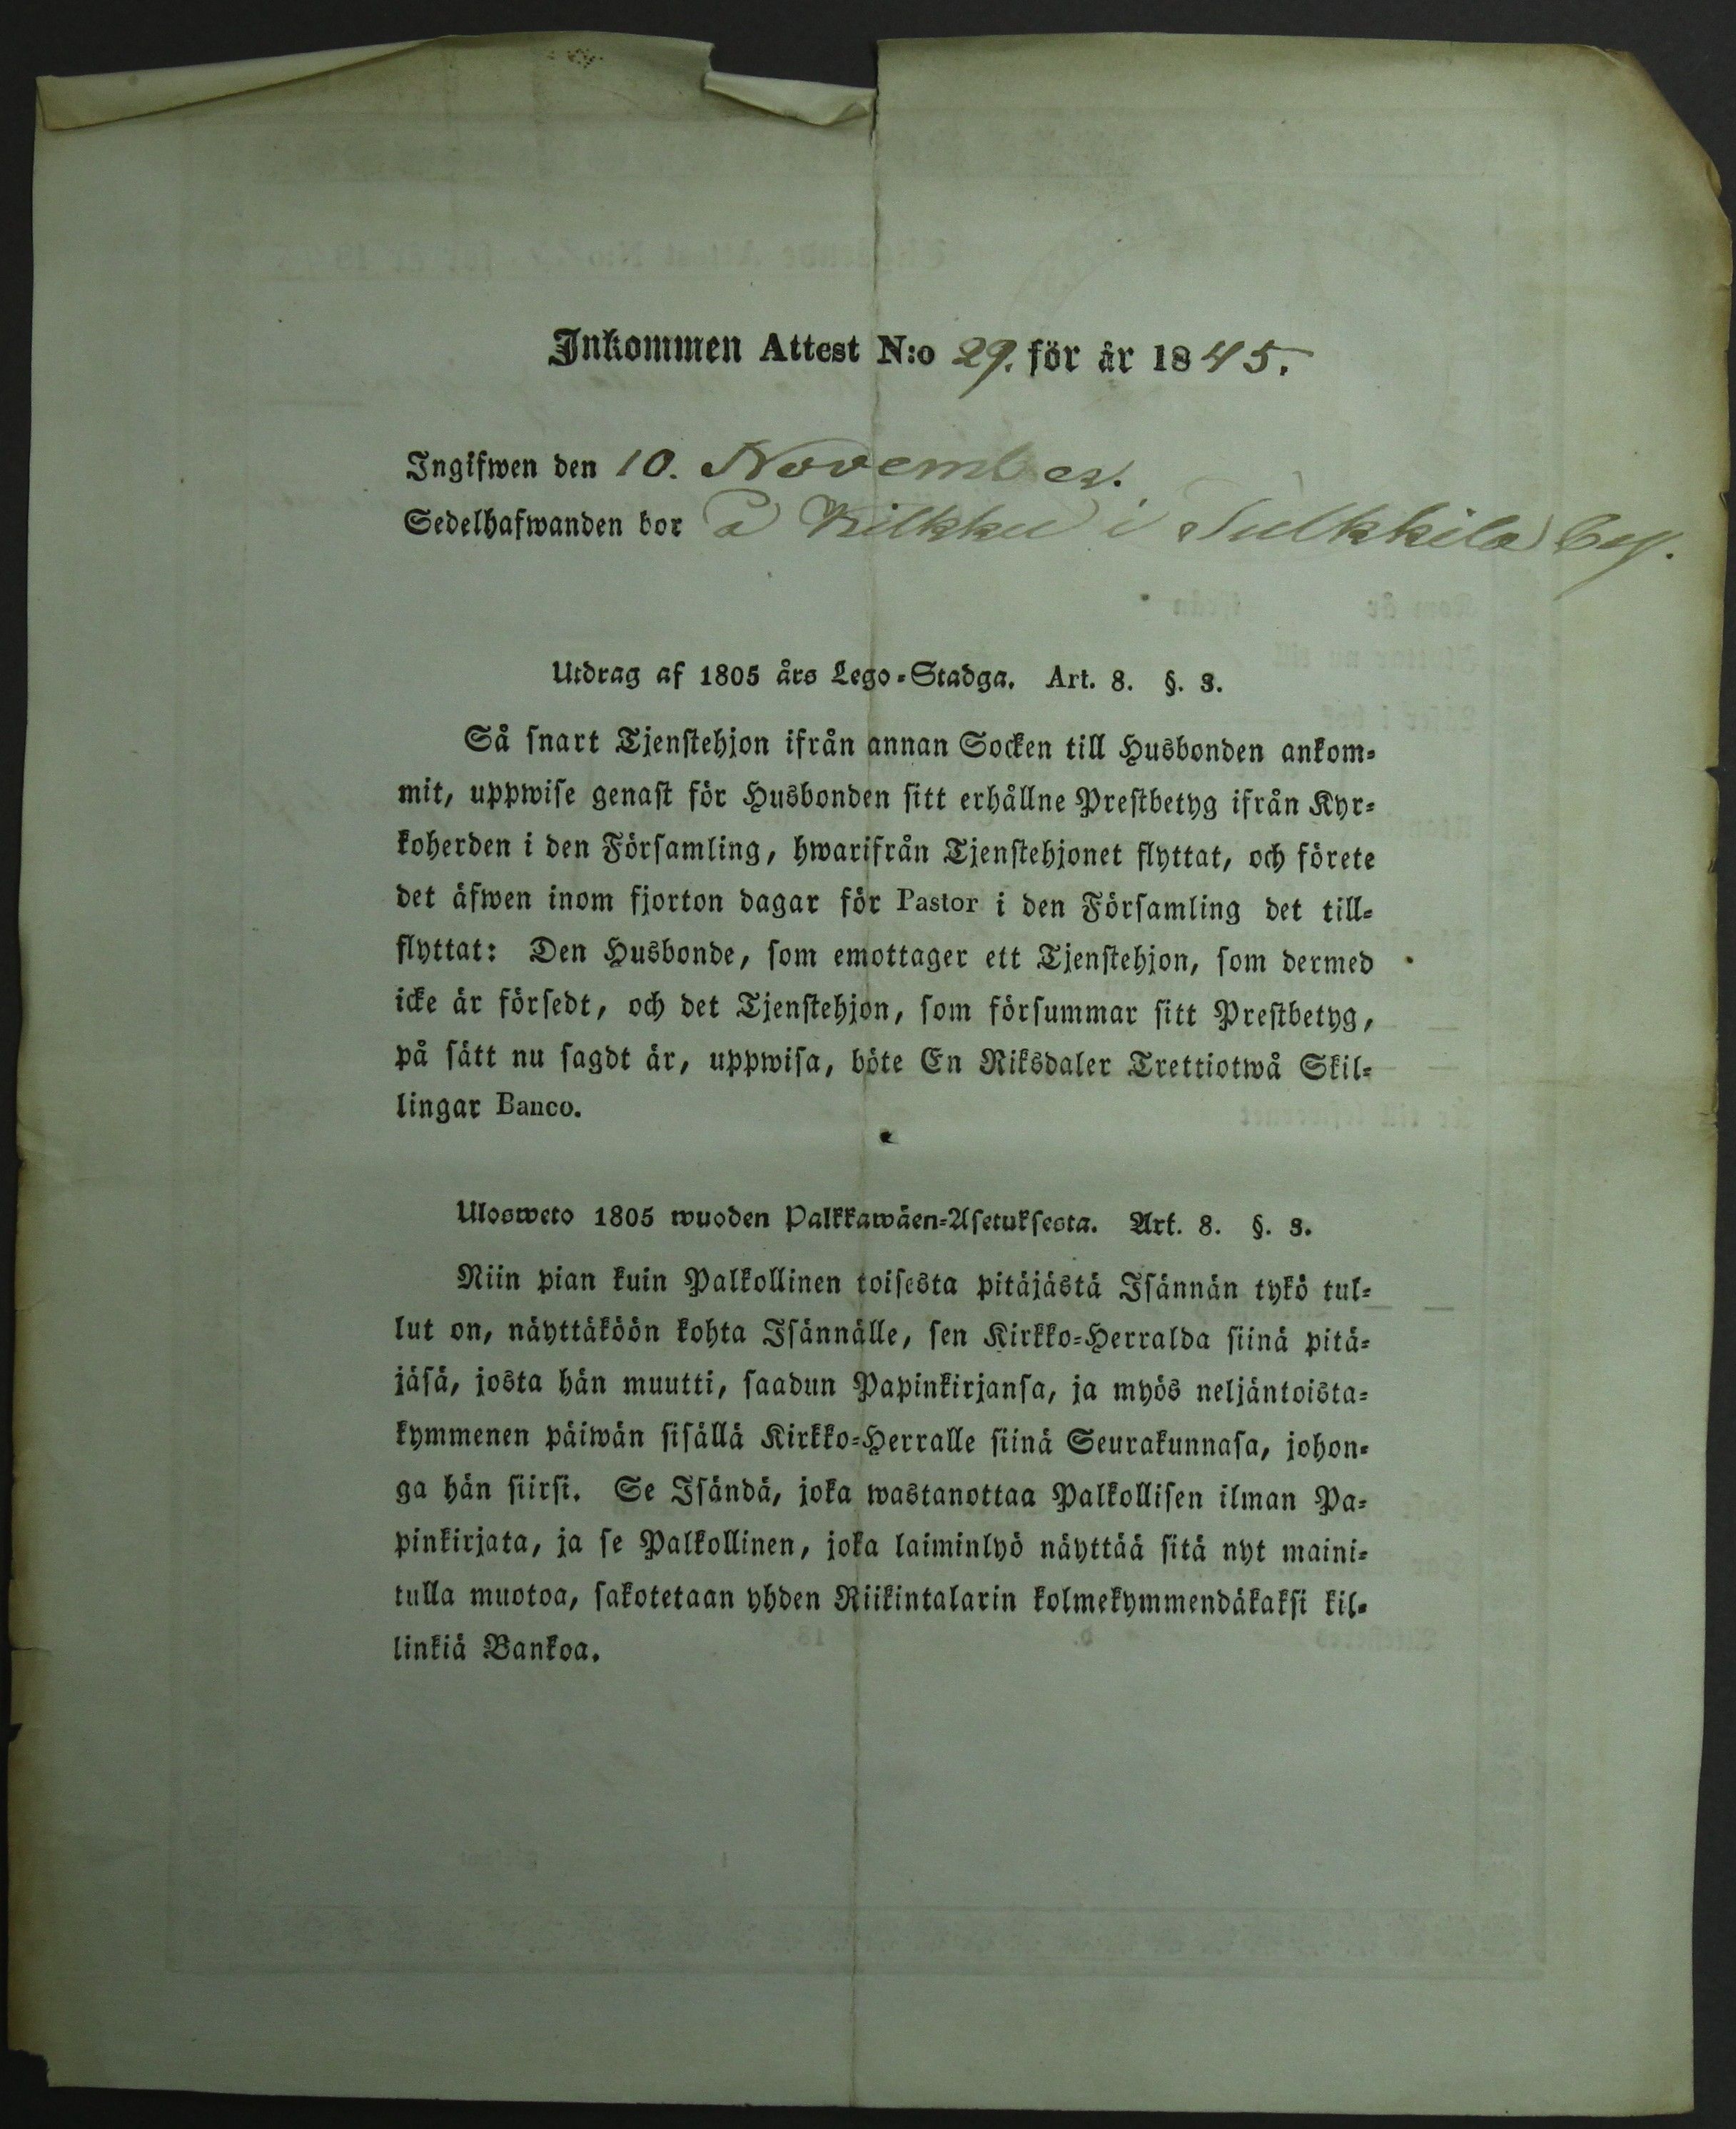 Inkommen Attest N:o 29. för år 1845.
Ingifwen den 10. November.
Sedelhafwanden bor å Kilkku i Sulkkila by.
Utdrag af 1805 års Lego-Stadga. Art. 8. §. 3.
Så snart Tjenstehjon ifrån annan Socken till Husbonden ankom-
mit, uppwise genast för Husbonden sitt erhållne Prestbetyg ifrån Kyr-
koherden i den Församling, hwarifrån Tjenstehjonet flyttat, och förete
det äfwen inom fjorton dagar för Pastor i den Församling det till-
flyttat: Den Husbonde, som emottager ett Tjenstehjon, som dermed
icke är försedt, och det Tjenstehjon, som försummar sitt Prestbetyg,
på sätt nu sagdt är, uppwisa, böte En Riksdaler Trettiotwå Skil-
lingar Banco.
Ulosweto 1805 wuoden Palkkawäen-Asetuksesta. Art. 8. §. 3.
Niin pian kuin Palkollinen toisesta pitäjästä Isännän tykö tul-
lut on, näyttäköön kohta Isännälle, sen Kirkko-Herralda siinä pitä-
jäsä, josta hän muutti, saadun Papinkirjansa, ja myös neljäntoista-
kymmenen päiwän sisällä Kirkko-Herralle siinä Seurakunnasa, johon-
ga hän siirsi. Se Isändä, joka wastanottaa Palkollisen ilman Pa-
pinkirjata, ja se Palkollinen, joka laiminlyö näyttää sitä nyt maini-
tulla muotoa, sakotetaan yhden Riikintalarin kolmekymmendäkaksi kil-
linkiä Bankoa.